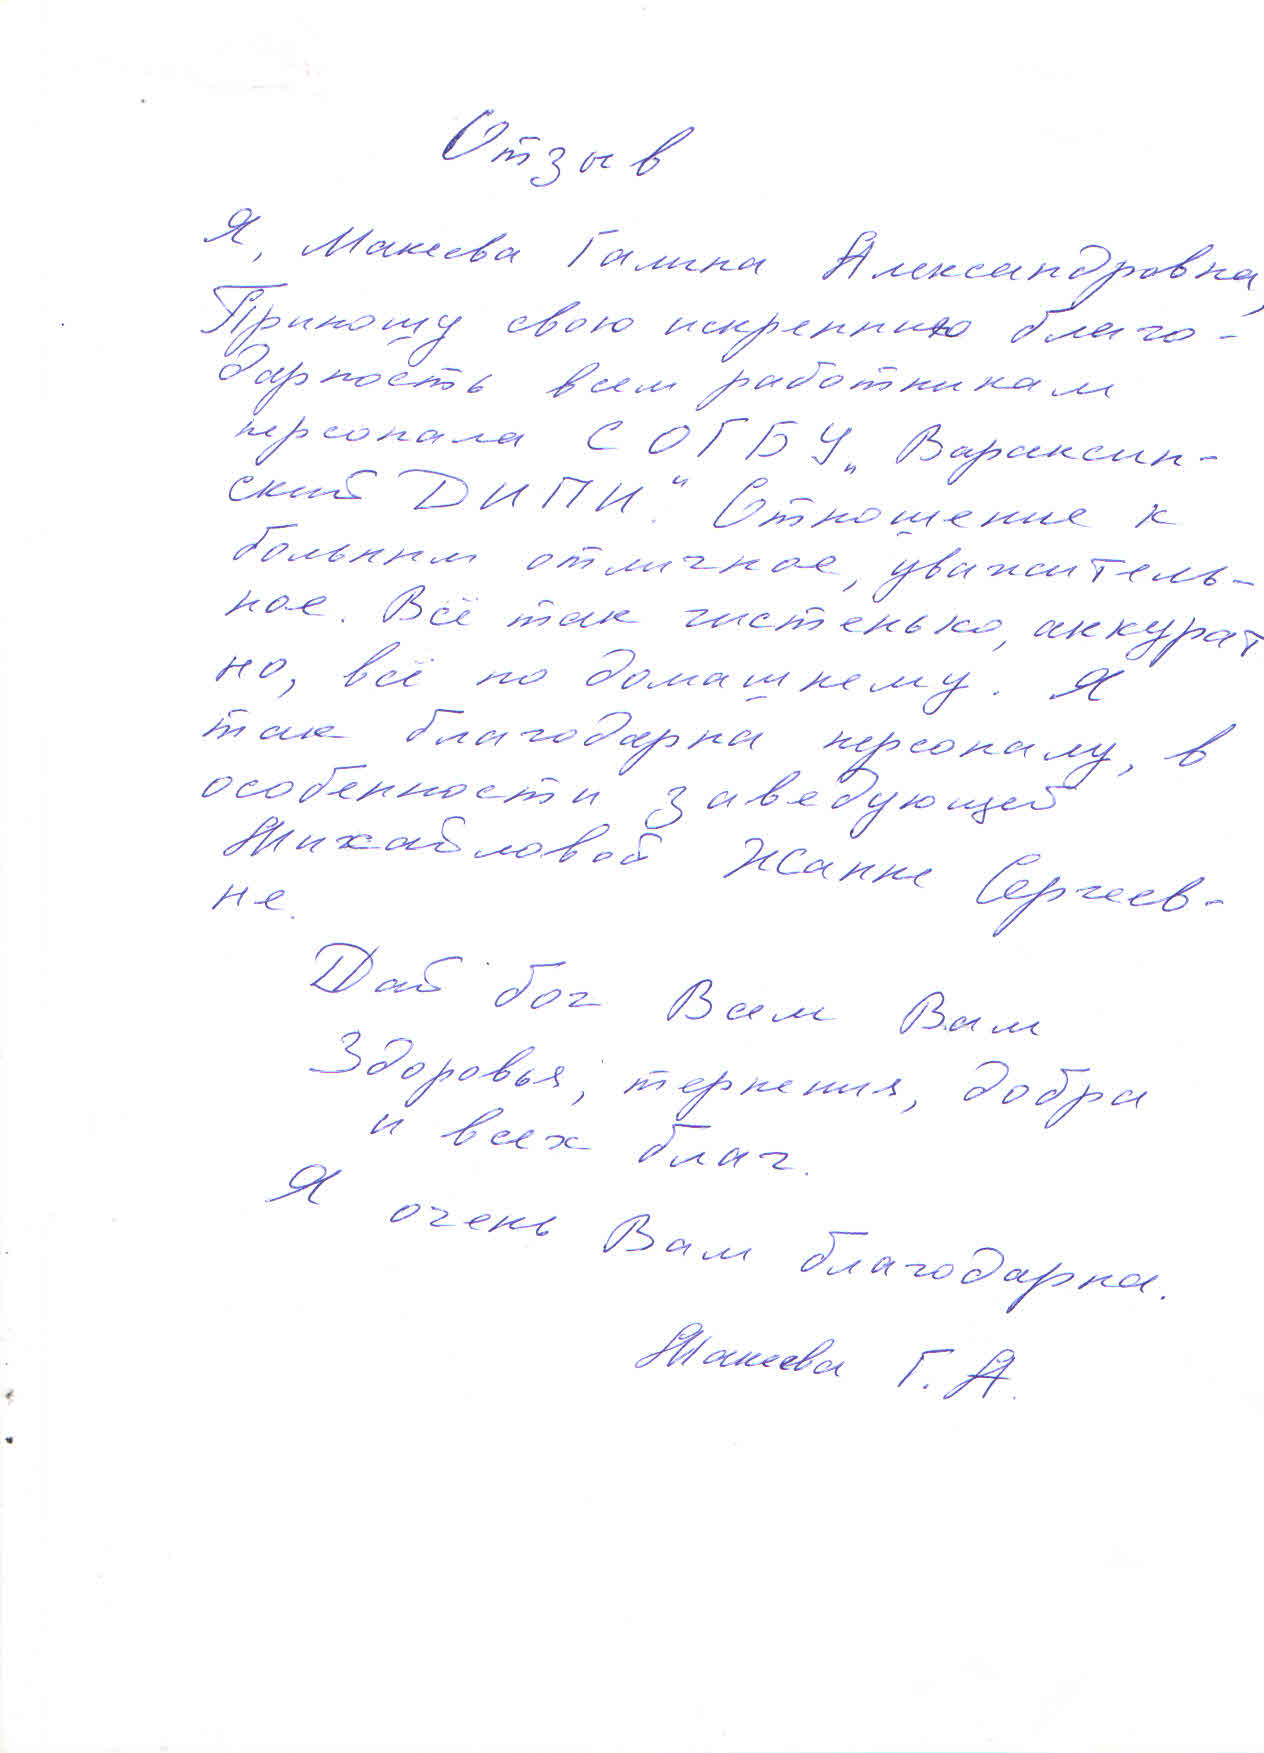 Отзыв
Я, Макеева Галина Александровна,
Приношу свою искреннюю благо-
дарность всем работникам
персонала СОГБУ „Вараксин-
ский ДИПИ". Отношение к
больным отличное, уважитель-
ное. Всё так чистенько, аккурат
но, всё по домашнему. Я
так благодарна персоналу, в
особенности заведующей
Михайловой Жанне Сергеев-
не.
Дай бог Всем Вам
Здоровья, терпения, добра
и всех благ.
Я очень Вам благодарна.
Макеева Г. А.